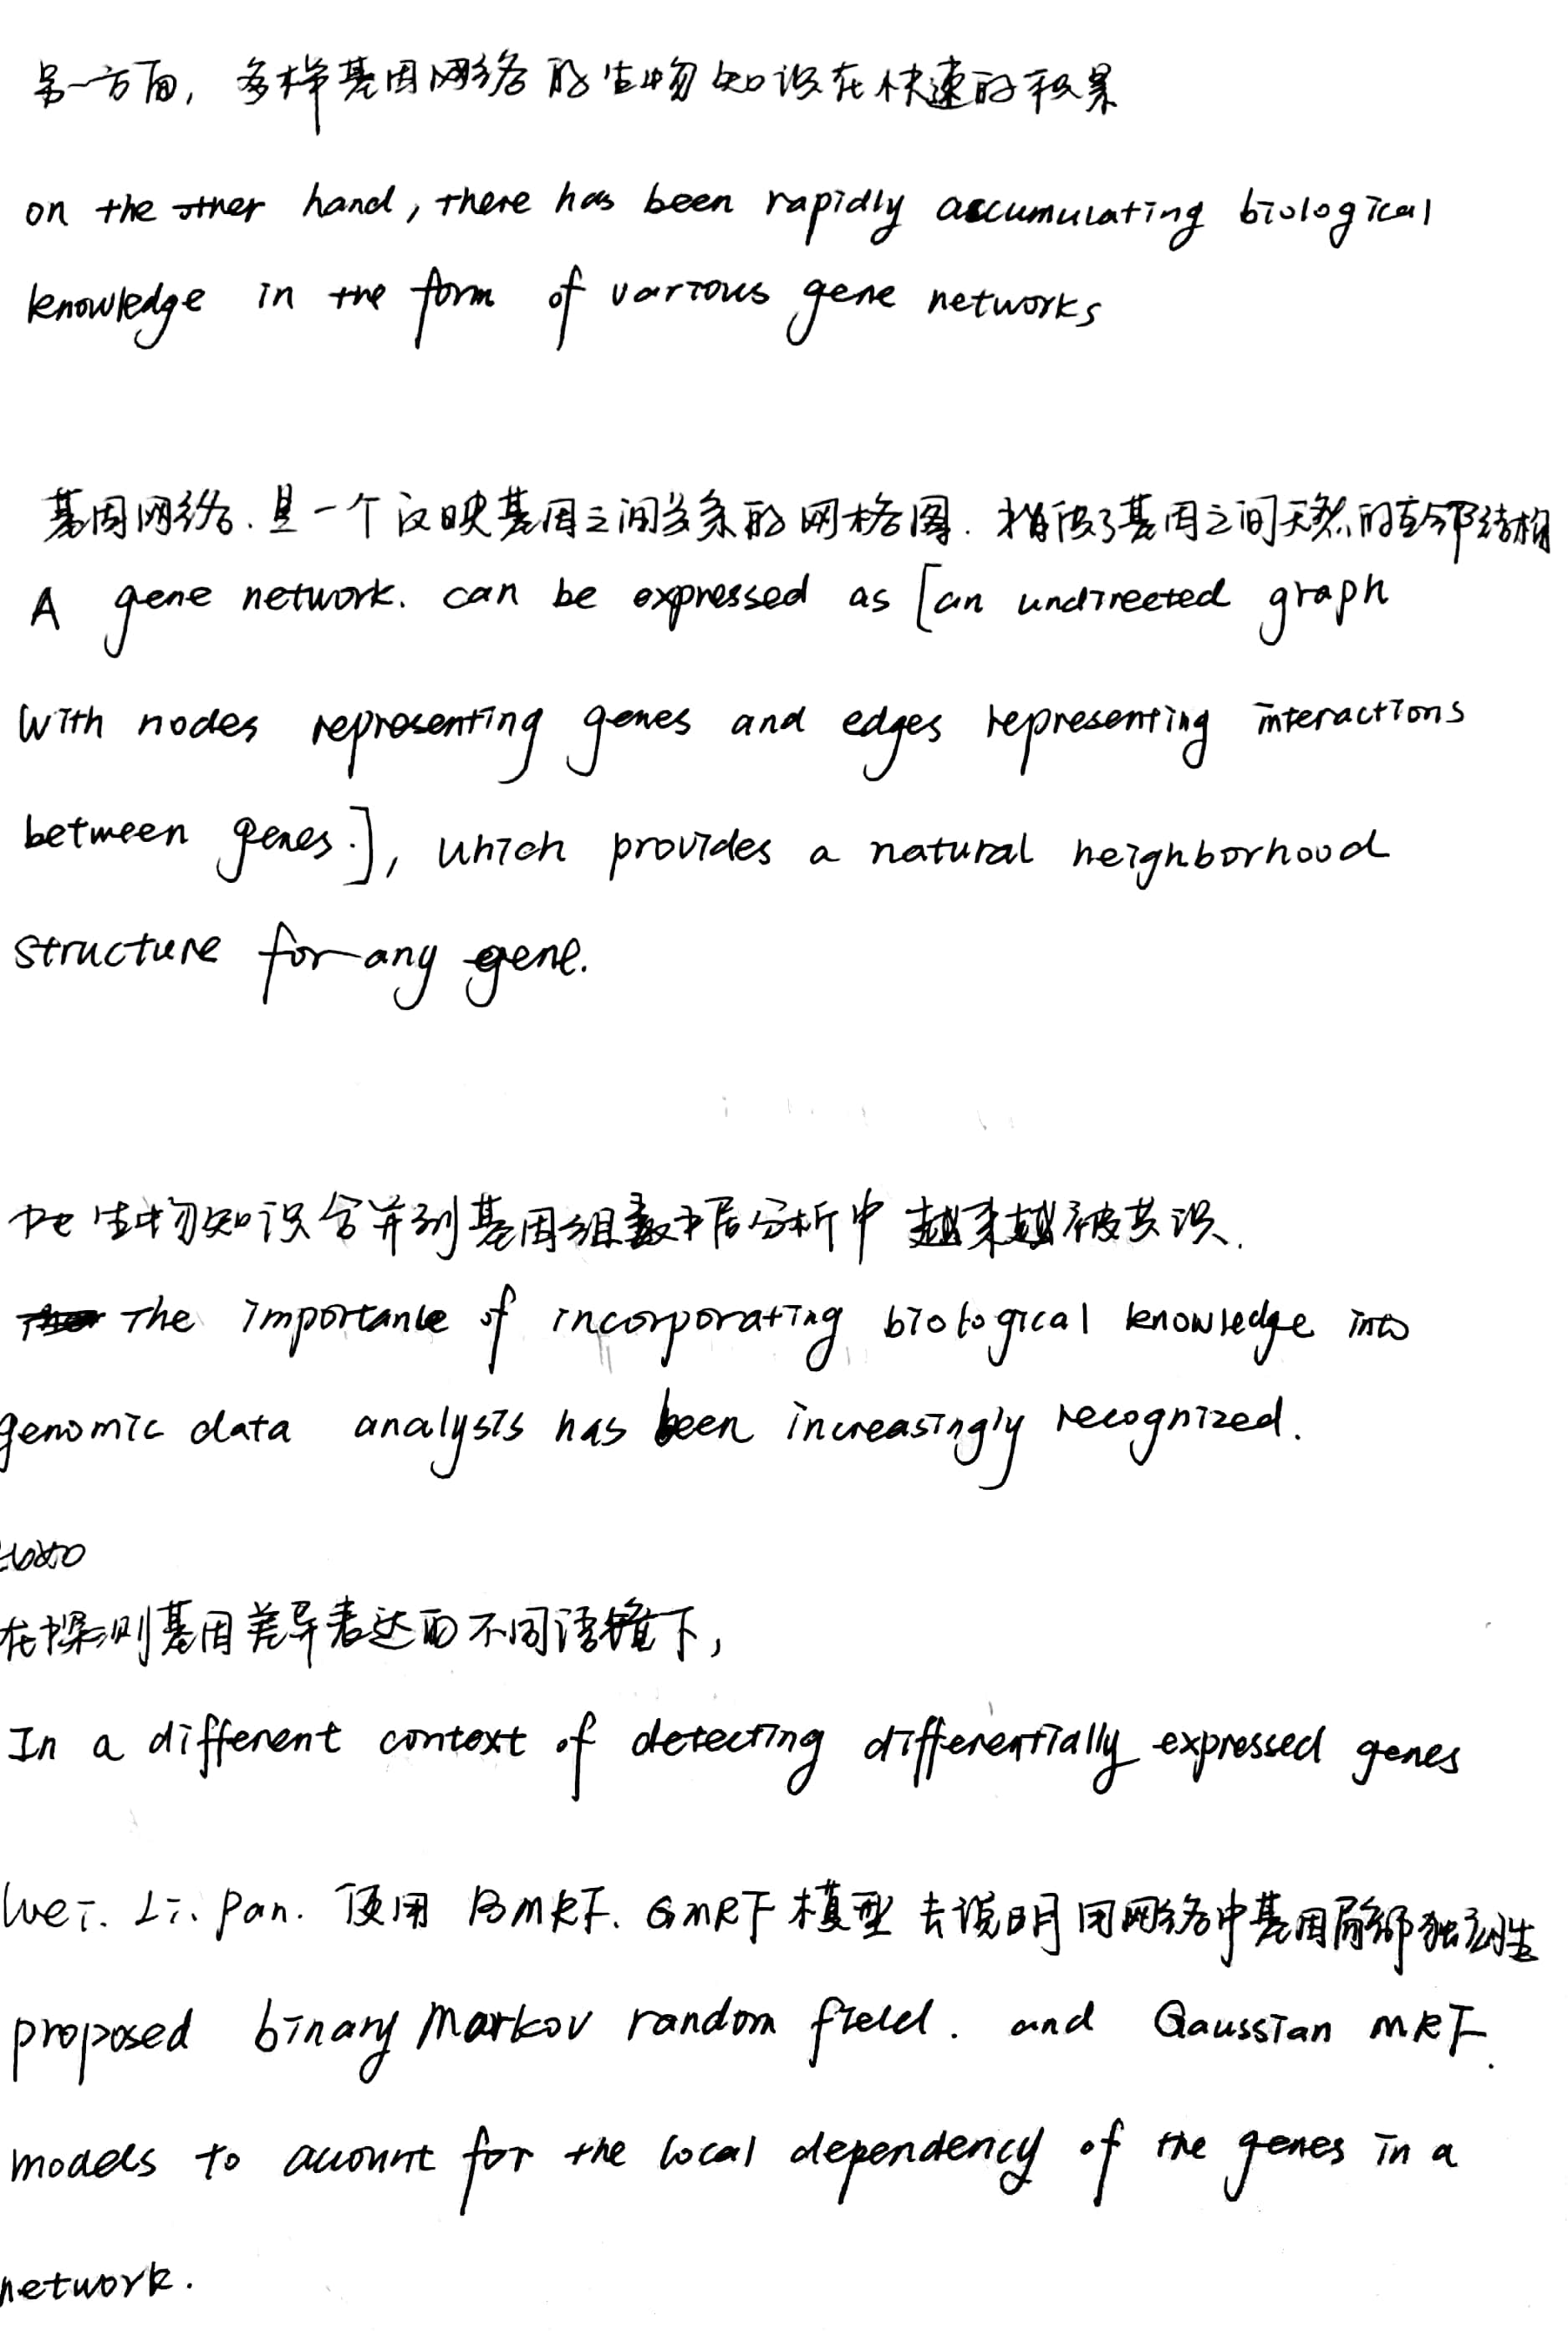 另一方面，多样基因网络的生物知识在快速的积累
on the other hand, there has been rapidly accumulating biological
knowledge in the form of various gene networks
基因网络.是一个反映基因之间关系的网格图.描述了基因之间天然的结构
A gene network. can be expressed as [an undirected graph
with nodes representing genes and edges representing interactions
between genes.], which provides a natural neighborhood
structure for any gene.
把生物知识合并到基因组数据分析中越来越被共识.
The importance of incorporating biological knowledge into
genomic data analysis has been increasingly recognized.
在探测基因差异表达的不同语境下,
In a different context of detecting differentially expressed genes
Wei. Li. Pan. 使用 BMRF. GMRF 模型去说明网络中基因局部独立性
proposed binary Markov random field. and Gaussian MRF.
models to account for the local dependency of the genes in a
network.